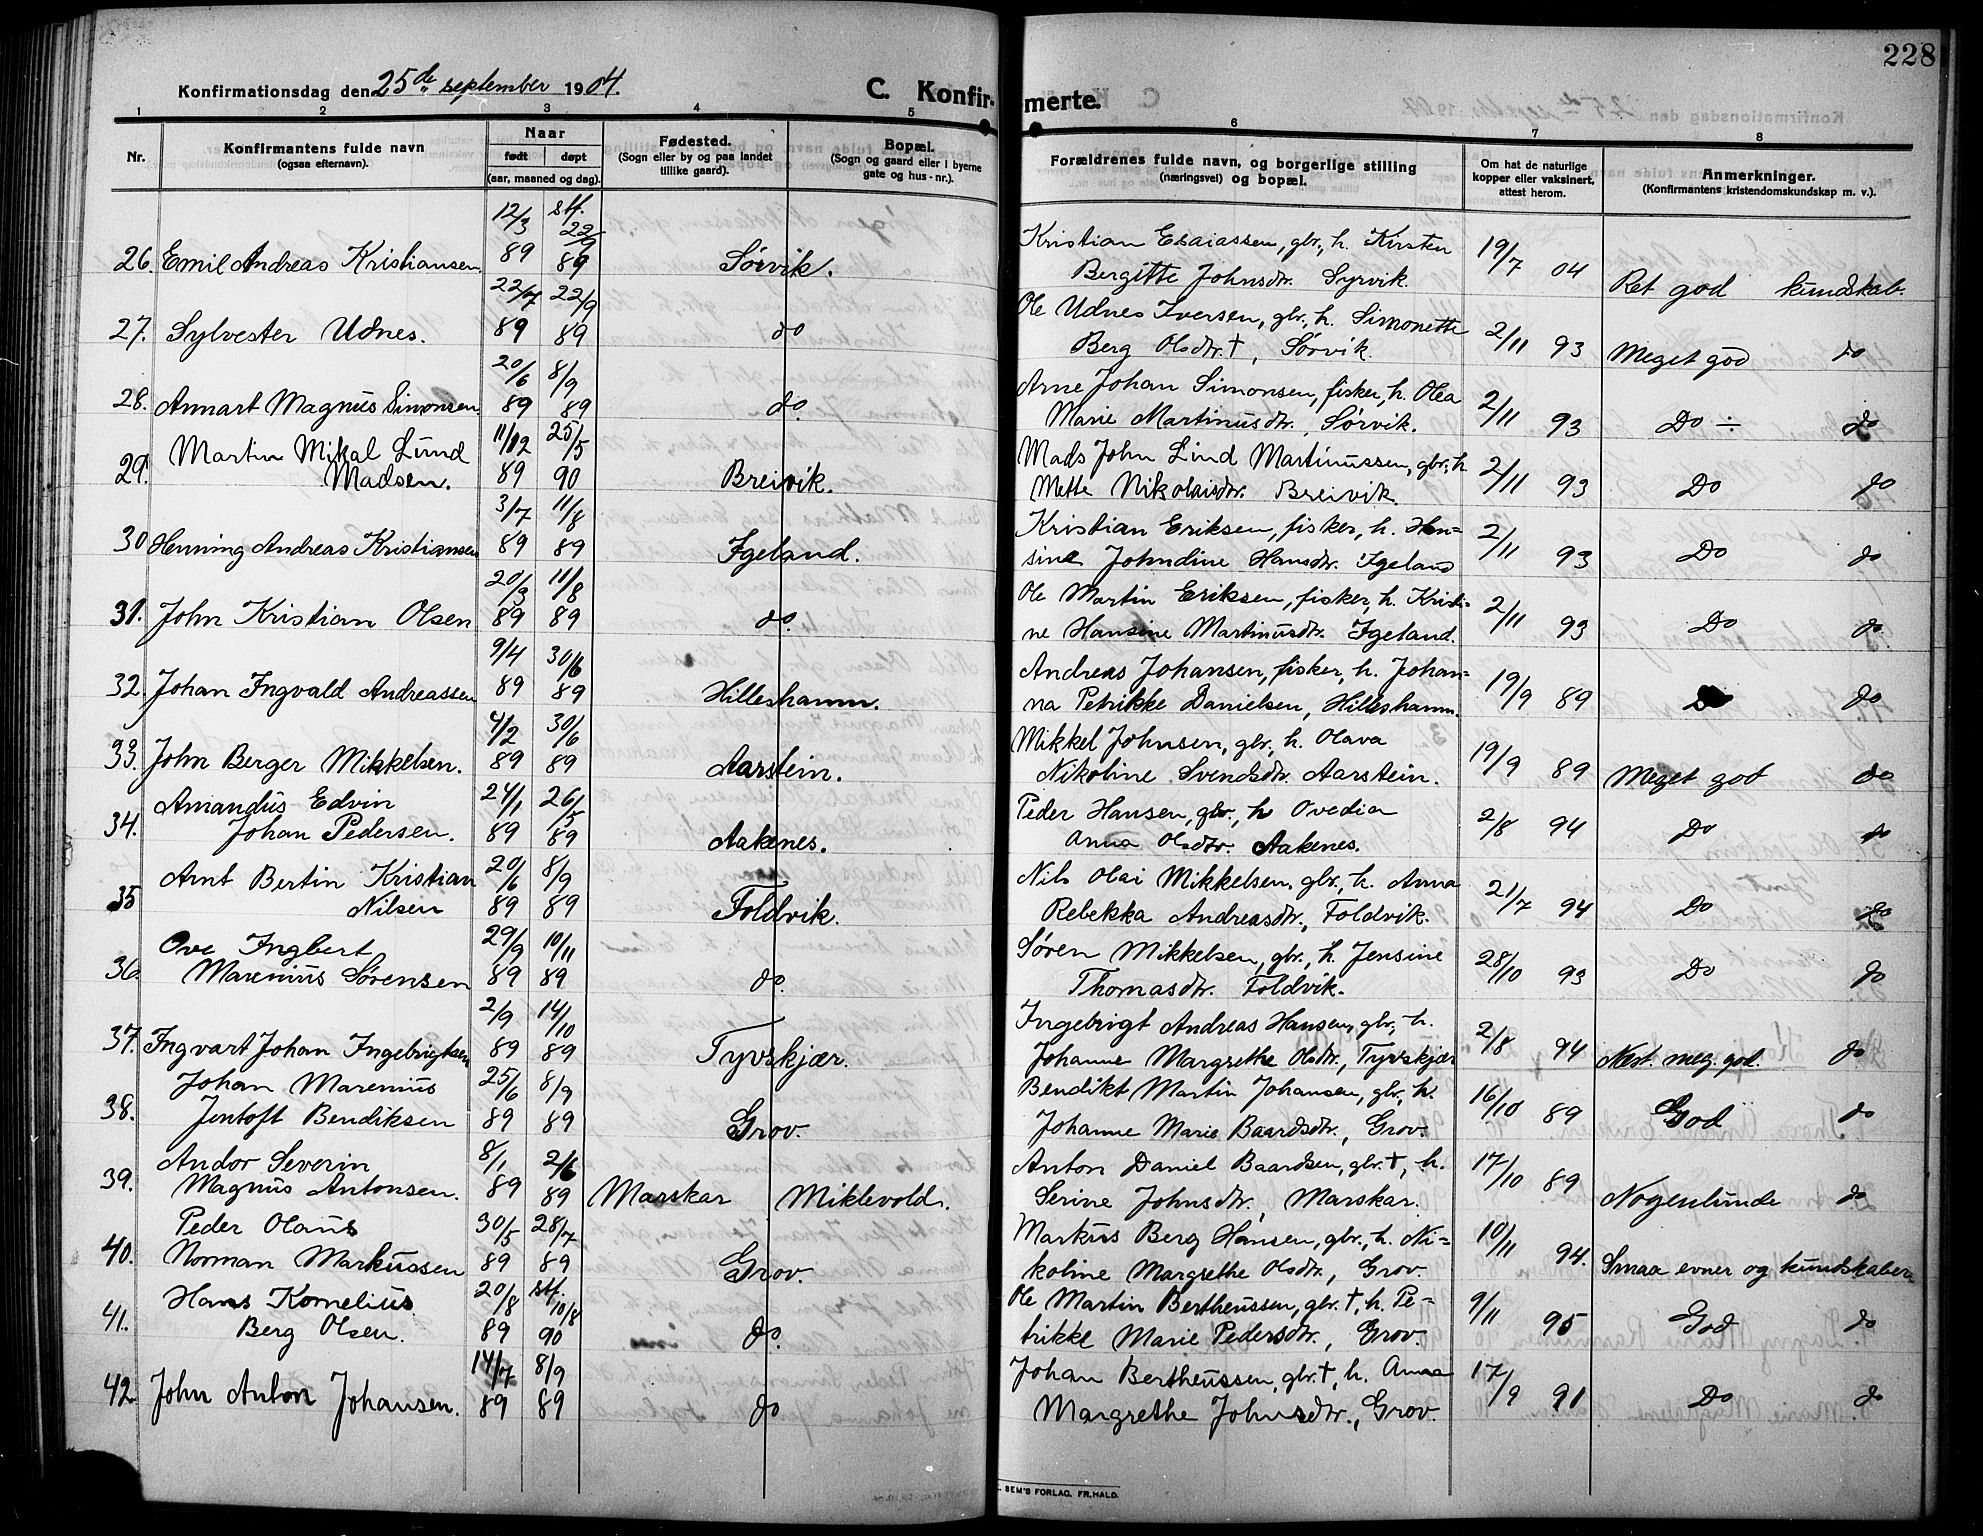 228
Konfirmationsdag den 25de september 1904.
C. Konfirmerte.
1 2 3 4 5 6 7 8
Nr.
Konfirmantens fulde navn
(ogsaa efternavn).
Naar
født døpt
(aar, maaned og dag).
Fødested.
(Sogn eller by og paa landet
tillike gaard).
Bopæl.
(Sogn og gaard eller i byerne
gate og hus-nr.).
Forældrenes fulde navn, og borgerlige stilling
(næringsvei) og bopæl.
Om hat de naturlige
kopper eller vaksinert,
attest herom.
Anmerkninger.
(Konfirmantens kristendomskundskap m. v.).
12/3 stf. 22/9 Kristian Esaiassen, gbr., h. Kirsten 19/7
26. Emil Andreas Kristiansen 89 89 Sørvik. Bergitte Johnsdtr. Syrvik. 04 Ret god kundskab.
22/7 22/9 Ole Udnes Iversen, gbr., h. Simonette 2/11
27. Sylvester Udnes. 89 89 do Berg Olsdtr. †, Sørvik. 93 Meget god do
20/6 8/9 Arne Johan Simonsen, fisker, h. Olea 2/11
28. Annart Magnus Simonsen 89 89 do. Marie Martinusdtr., Sørvik. 93 Do ÷ do
Martin Mikal Lund 11/12 25/5 Mads John Lind Martinussen, gbr., h. 2/11
29. Madsen. 89 90 Breivik. Mette Nikolaisdtr. Breivik. 93 Do do
3/7 11/8 Kristian Eriksen, fisker, h. Han= 2/11
30 Henning Andreas Kristiansen 89 89 Igeland. sine Johndine Hansdtr. Igeland 93 Do do
20/3 11/8 Ole Martin Eriksen, fisker, h. Kristi- 2/11
31. John Kristian Olsen 89 89 do. ne Hansine Martinusdtr. Igeland. 93 Do do
9/4 30/6 Andreas Johansen, fisker, h. Johan= 19/9
32. Johan Ingvald Andreassen 89 89 Hilleshamn. na Petrikke Danielsen, Hilleshamn. 89 do
4/2 30/6 Mikkel Johnsen, gbr., h. Olava 19/9
33. John Berger Mikkelsen. 89 89 Aarstein. Nikoline Svendsdtr. Aarstein. 89 Meget god do
Amandus Edvin 24/1 26/5 Peder Hansen, gbr., h Ovedia 2/8
34. Johan Pedersen. 89 89 Aakenes. Anna Olsdtr. Aakenes. 94 Do do
Arnt Bertin Kristian 20/6 8/9 Nils Olai Mikkelsen, gbr., h. Anna 21/7
35 Nilsen 89 89 Foldvik. Rebekka Andreasdtr., Foldvik. 94 Do do
Ove Ingbert 29/9 10/11 Søren Mikkelsen, gbr., h. Jensine 28/10
36. Marenius Sørensen 89 89 do. Thomasdtr. Foldvik. 93 Do do
2/9 14/10 Ingebrigt Andreas Hansen, gbr., h. 2/8
37. Ingvart Johan Ingebrigtsen 89 89 Tyvskjær. Johanne Margrethe Olsdtr., Tyvskjær 94 Nest. meg. god. do
Johan Marenius 25/6 8/9 Bendikt Martin Johansen, gbr., h. 16/10
38. Jentoft Bendiksen 89 89 Grov. Johanne Marie Baardsdtr., Grov. 89 God do
Andor Severin 8/1 2/6 Anton Daniel Baardsen, gbr. †, h. 17/10
39. Magnus Antonsen. 89 89 Marskar Miklevold. Serine Johnsdtr., Marskar. 89 Nogenlunde do
Peder Olaus 30/5 28/7 Markus Berg Hansen, gbr., h. Ni- 10/11
40. Norman Markussen 89 89 Grov. koline Margrethe Olsdtr., Grov. 94. Smaa evner og kundskaber
Hans Kornelius 20/8 stf. 10/8 Ole Martin Bertheussen, gbr. †, h. Pe- 9/11
41. Berg Olsen. 89 90 do. trikke Marie Pedersdtr., Grov. 95 God do
14/7 8/9 Johan Bertheussen, gbr. †, h. Anna 17/9
42. John Anton Johansen. 89 89 do Margrethe Johnsdtr., Grov. 91 Do do
SEM'S FORLAG, FR.HALD.